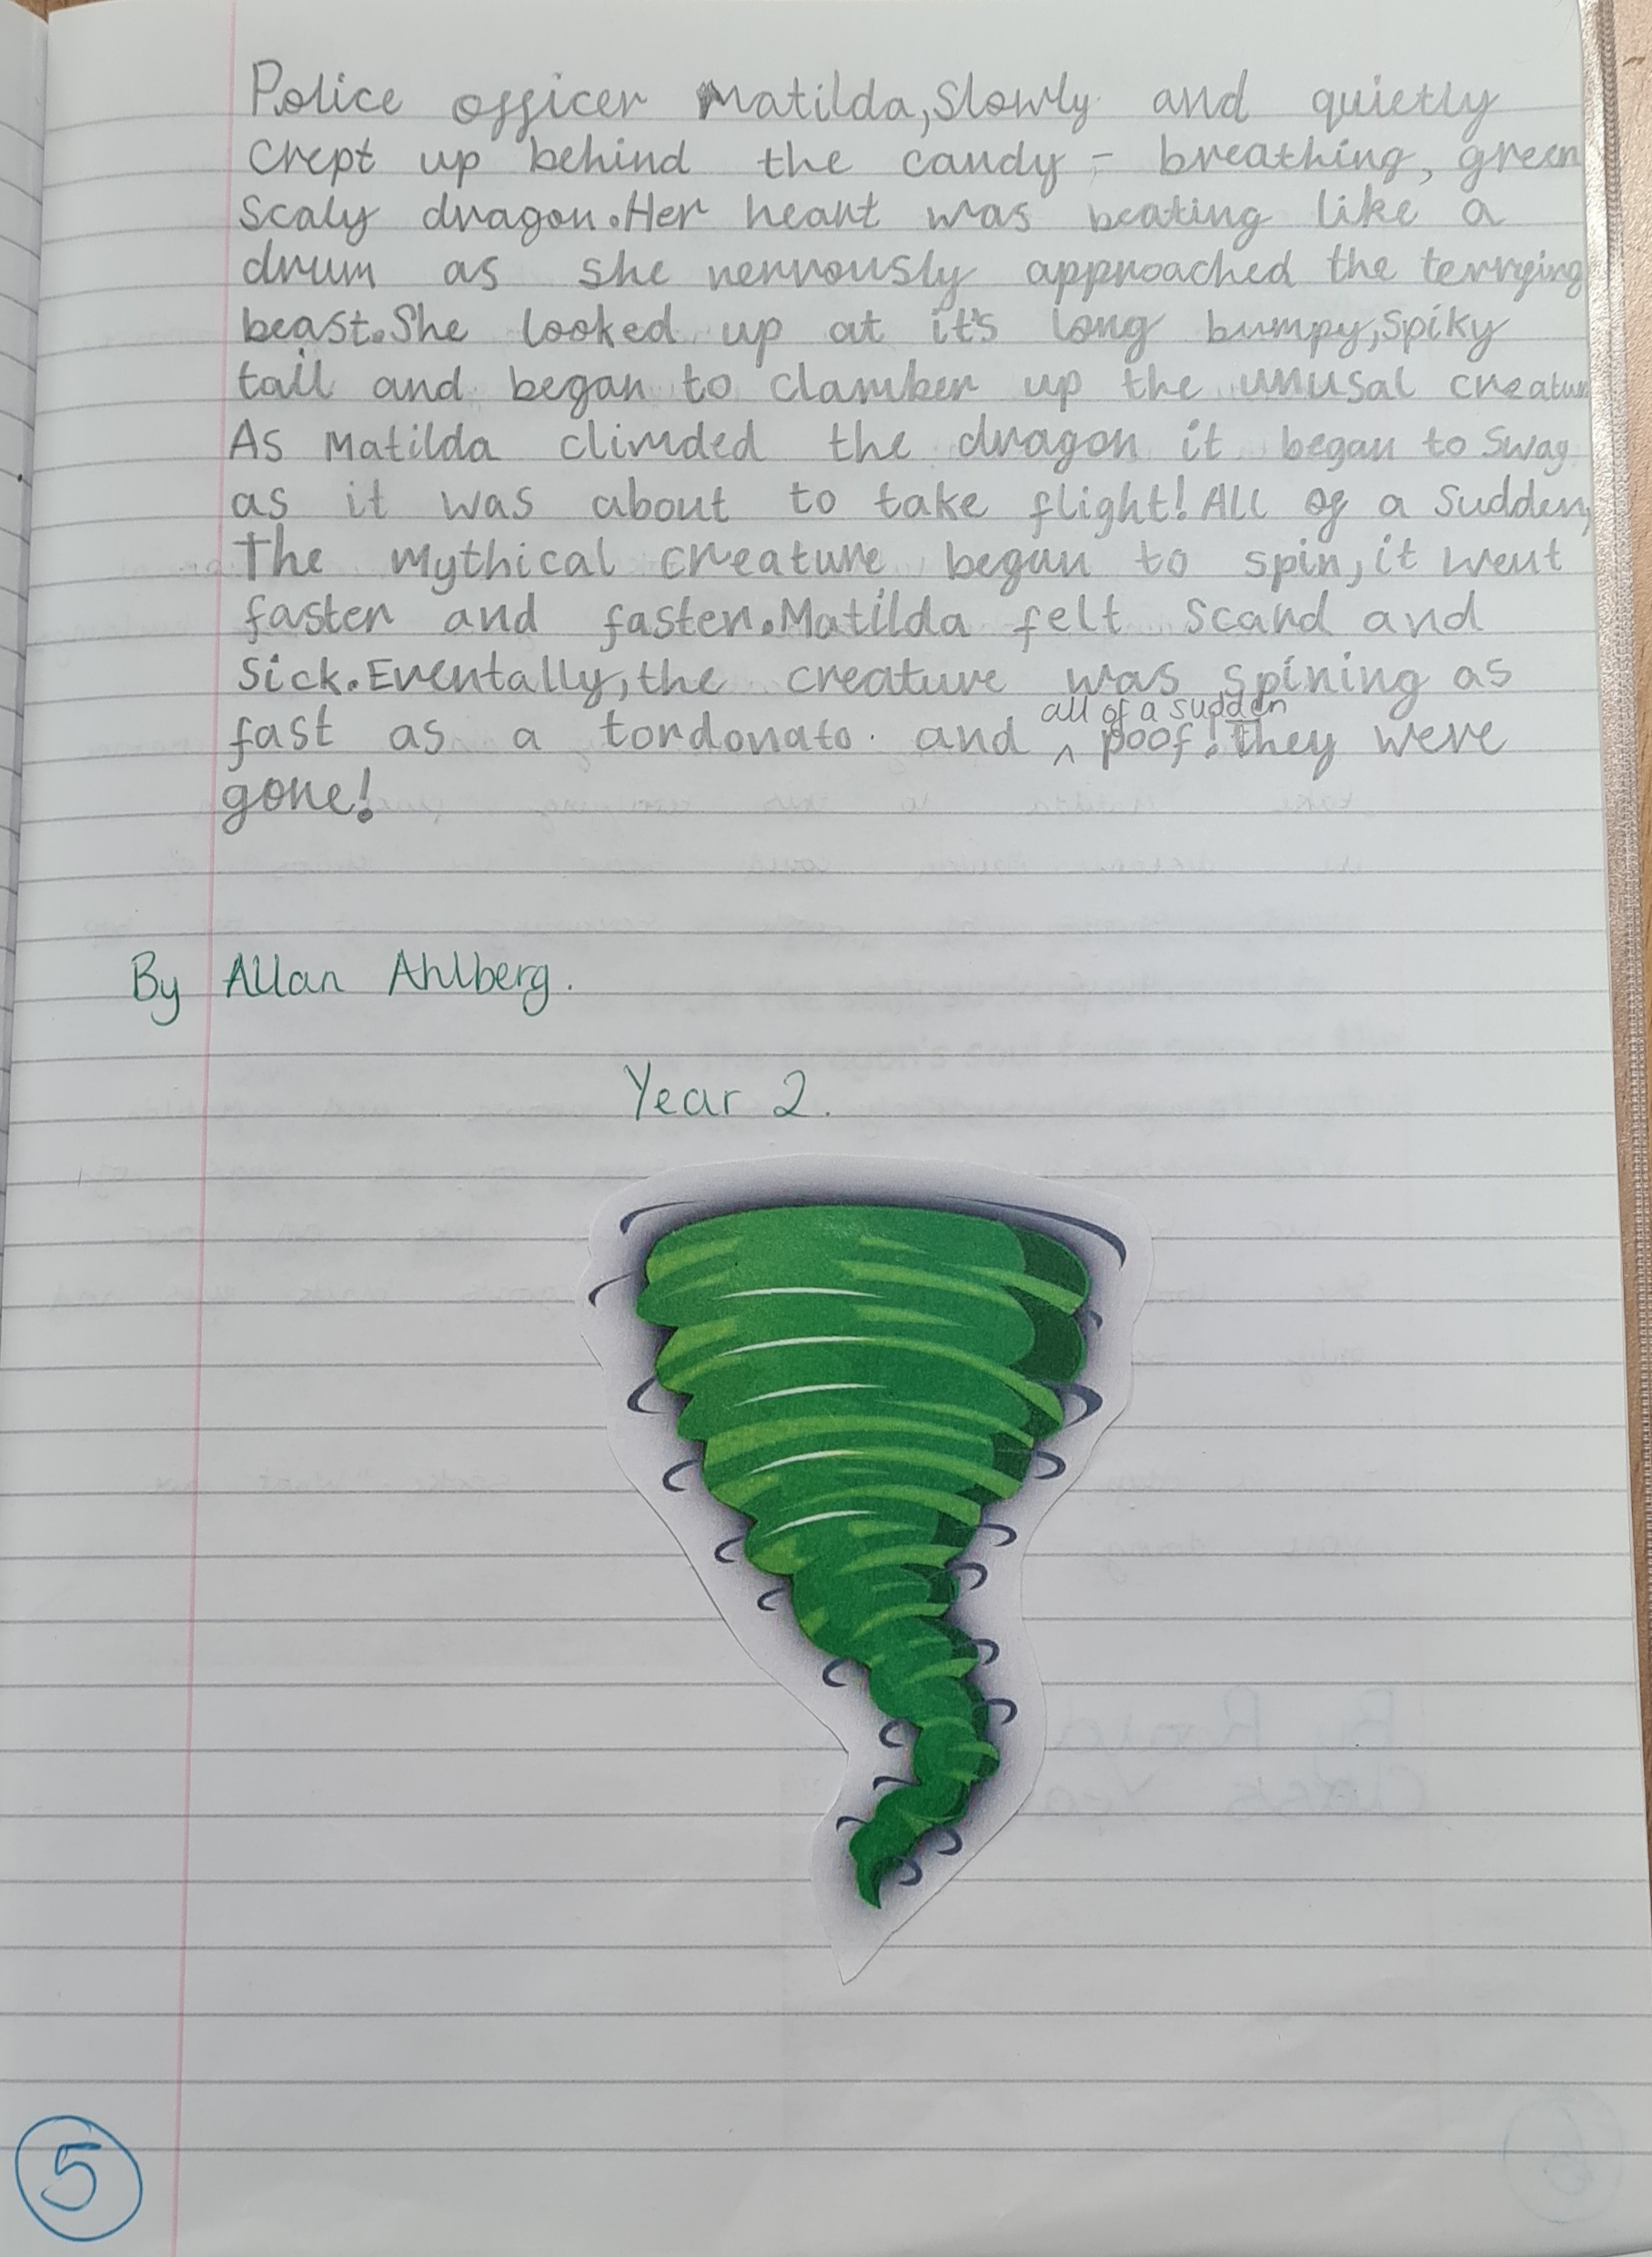 Police officer Matilda, Slowly and quietly
crept up behind the candy - breathing, green
scaly dragon. Her heart was beating like a
drum as she nervously approached the terrying
beast. She looked up at it's long bumpy, spiky
tail and began to clamber up the unusal creature
As Matilda climded the dragon it began to sway
as it was about to take flight! All of a sudden,
The mythical creature began to spin, it went
faster and faster. Matilda felt scard and
sick. Eventally, the creature was spining as
all of a sudden
fast as a tordonato. and ^ poof! they were
gone!
By Allan Ahlberg.
Year 2.
5